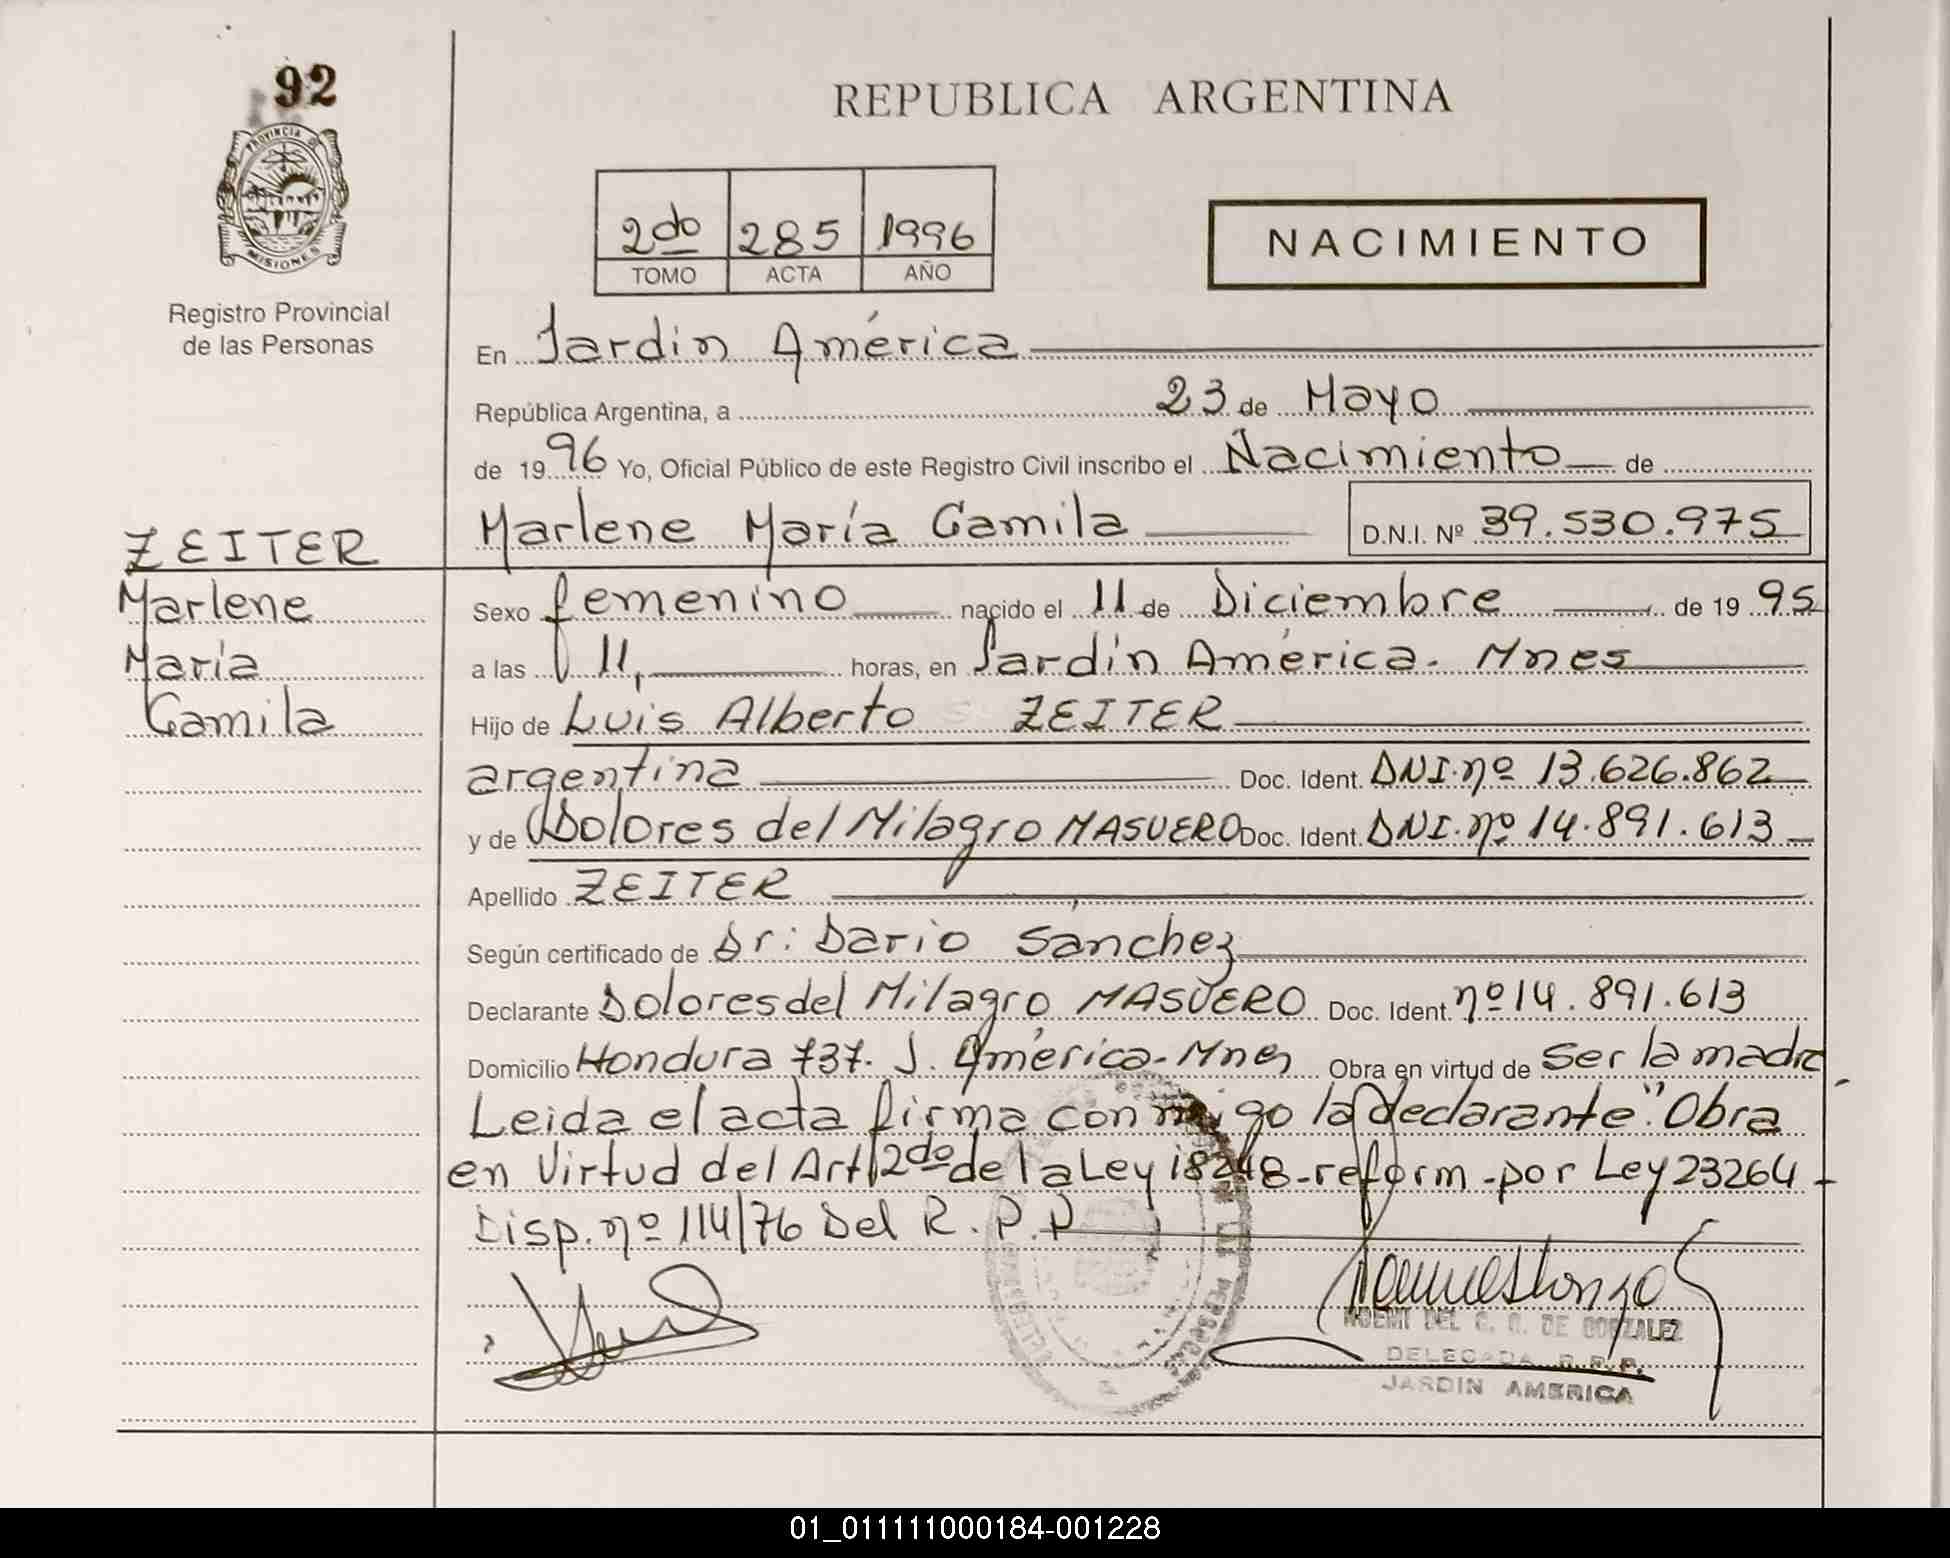 92
REPUBLICA ARGENTINA
PROVINCIA DE
MISIONES
Registro Provincial
de las Personas
2do 285 1996
TOMO ACTA AÑO
NACIMIENTO
En Jardín América
República Argentina, a 23 de Mayo
de 1996 Yo, Oficial Público de este Registro Civil inscribo el Nacimiento de
Marlene María Camila D.N.I. Nº 39.530.975
ZEITER
Marlene
María
Camila
Sexo femenino nacido el 11 de Diciembre de 19 95
a las 11, horas, en Jardín América. Mnes
Hijo de Luis Alberto ZEITER
argentina Doc. Ident. DNI. nº 13.626.862
y de Dolores del Milagro MASUERO Doc. Ident. DNI. nº 14.891.613
Apellido ZEITER
Según certificado de Dr: Dario Sánchez
Declarante Dolores del Milagro MASUERO Doc. Ident. nº 14.891.613
Domicilio Hondura 737. J. América-Mnes Obra en virtud de ser la madre
Leida el acta firma conmigo la declarante". Obra
en Virtud del Art 2do de la Ley 18248-reform-por Ley 23264-
Disp. nº 114/76 Del R.P.P
NOEMI DEL C. G. DE GONZALEZ
DELEGADA R.R.P.
JARDIN AMERICA
01_011111000184-001228